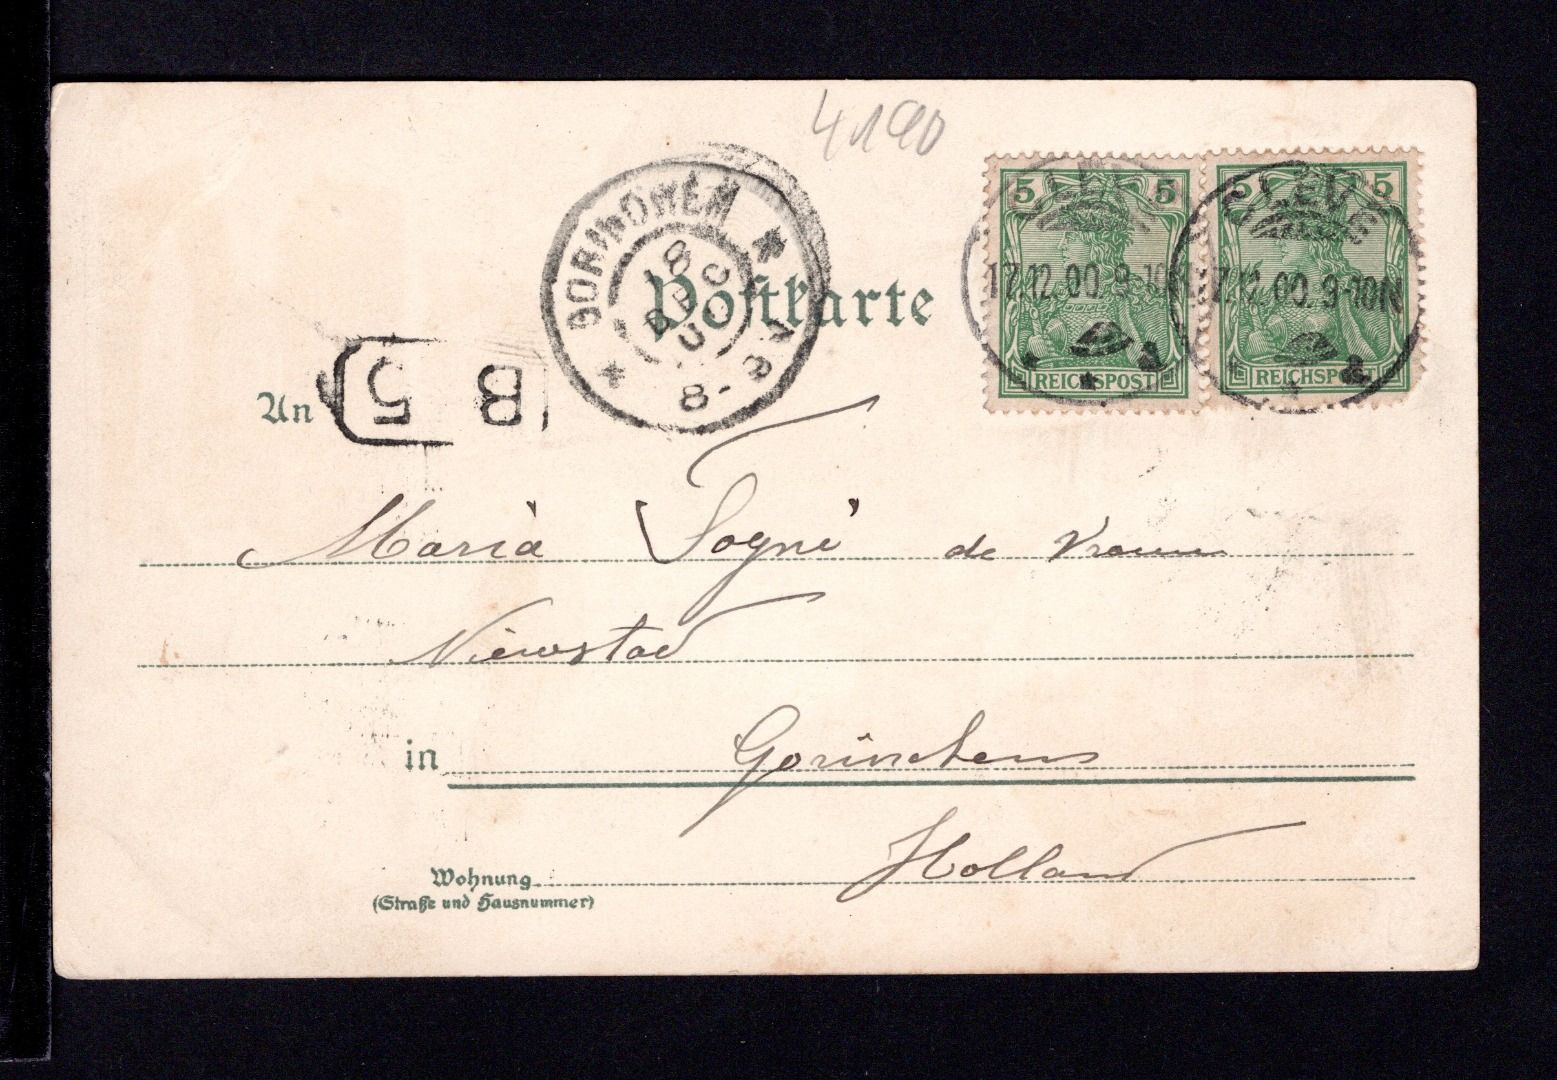 4190
5 5 5 5
CLEVE CLEVE
17.12.00.9-10N 17.12.00.9-10N
REICHSPOST REICHSPOST
GORINCHEM
18 DEC 00
8-9V
Postkarte
An
B 5
Maria Sogné de Vroum
Nieuwstad
in Gorinchem
Holland
Wohnung
(Straße und Hausnummer)